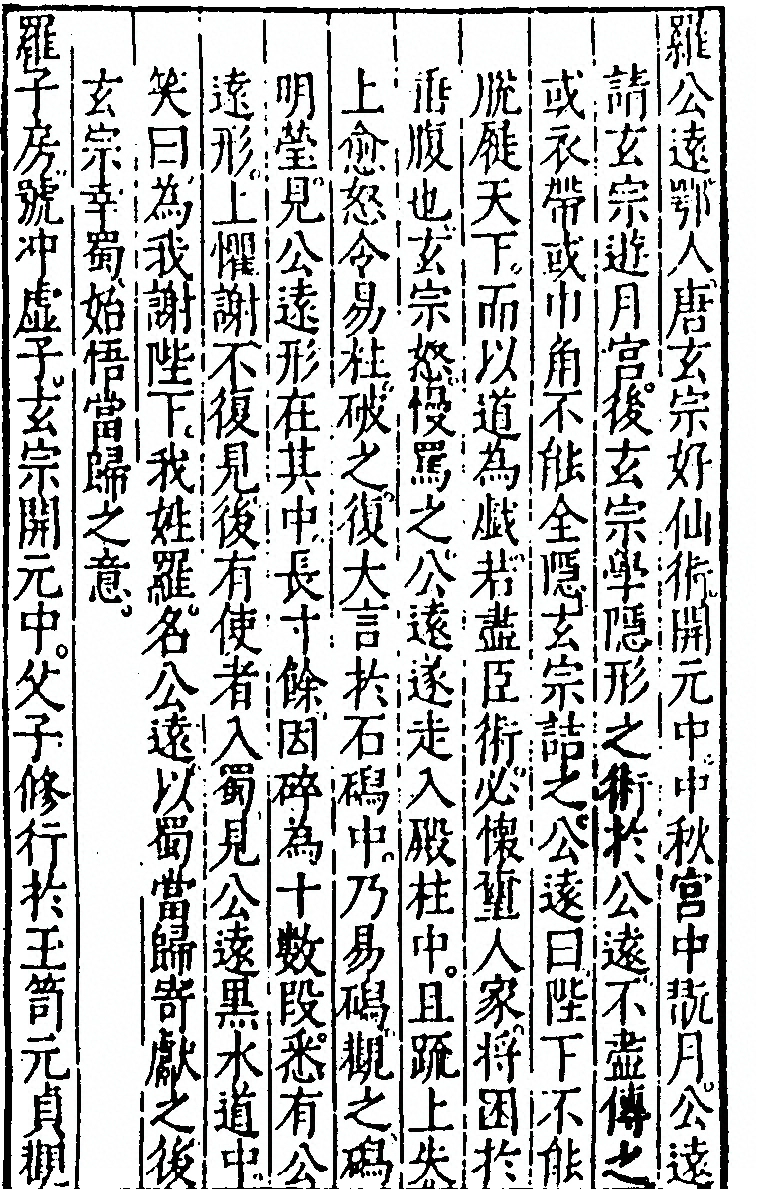 羅公遠鄂人唐玄宗好仙術開元中中秋宮中翫月公遠
請玄宗遊月宮後玄宗學隱形之術於公遠不盡傳之
或衣帶或巾角不能全隱玄宗詰之公遠曰陛下不能
脫屣天下而以道為戲若盡臣術必懷璽人家將困於
魚腹也玄宗怒慢罵之公遠遂走入殿柱中且䟽上失
上愈怒令易柱破之復大言於石碣中乃易碣觀之碣
明瑩見公遠形在其中長寸餘因碎為十數段悉有公
遠形上懼謝不復見後有使者入蜀見公遠黑水道中
笑曰為我謝陛下我姓羅名公遠以蜀當歸寄獻之後
玄宗幸蜀始悟當歸之意
羅子房號冲虛子玄宗開元中父子修行於玉笥元貞觀